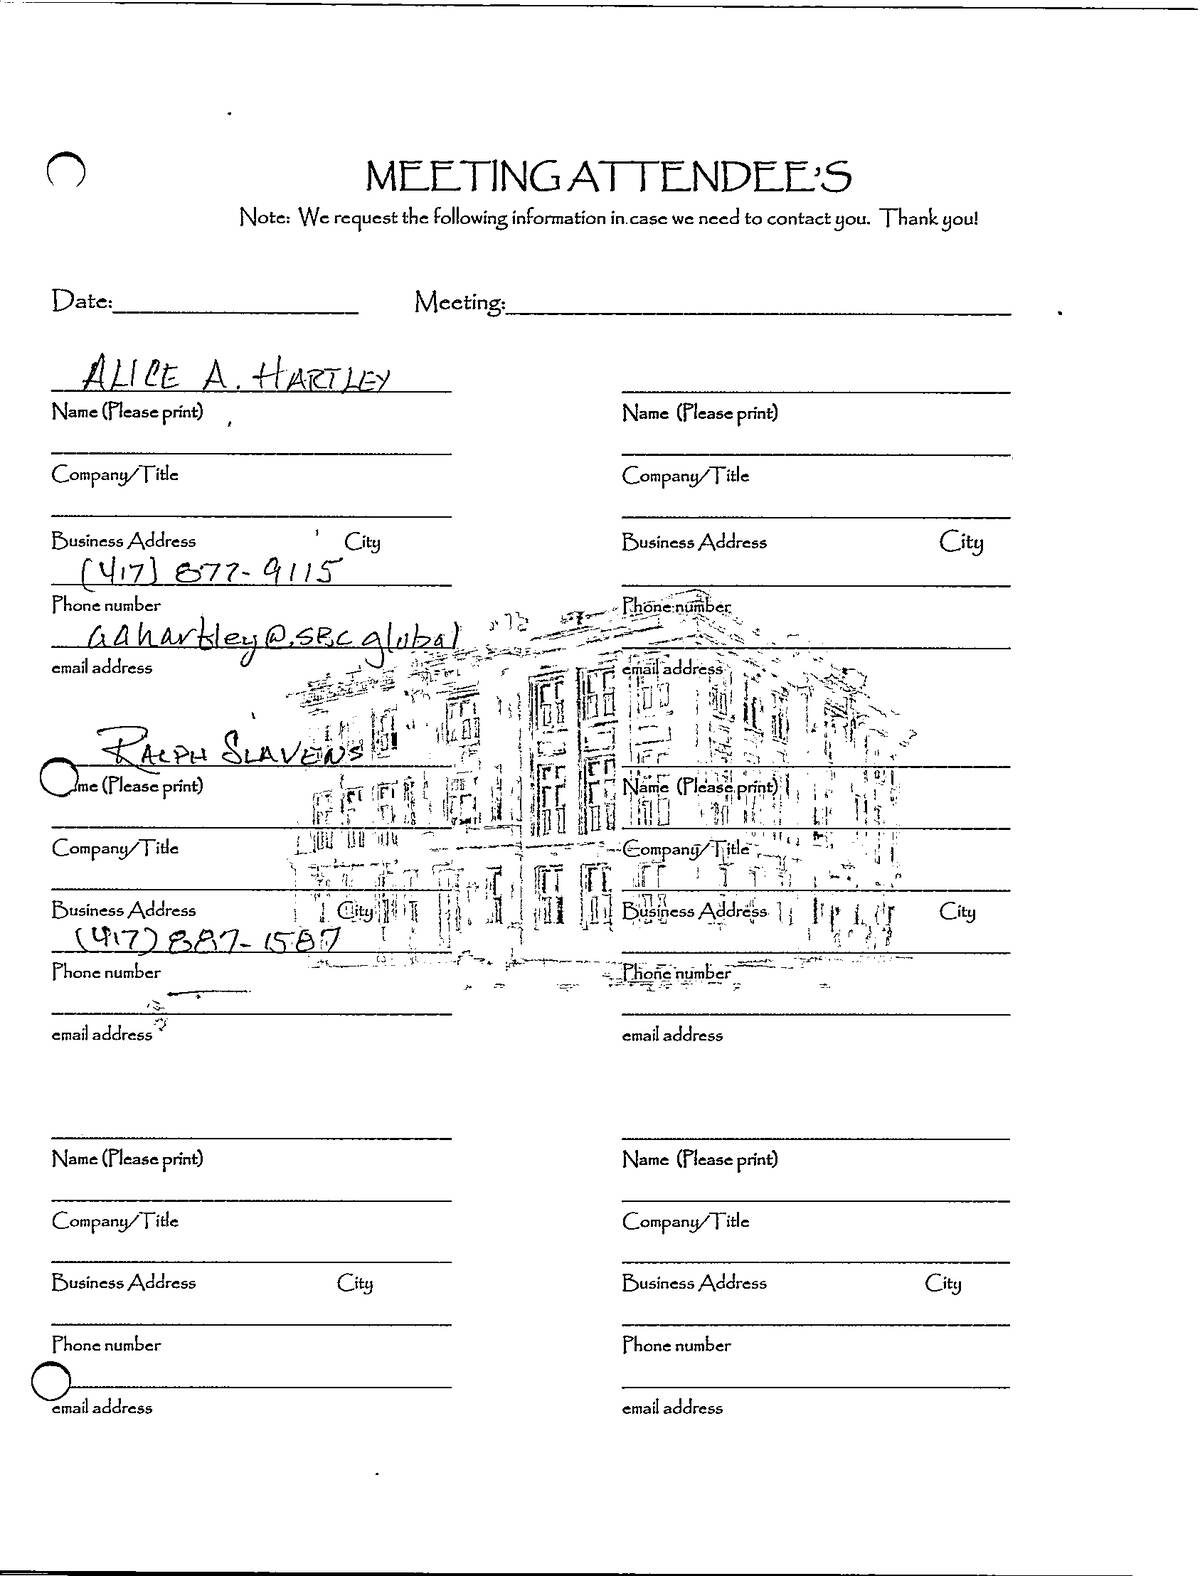 MEETING ATTENDEE'S
Note: We request the following information in case we need to contact you. Thank you!
Date: Meeting:
ALICE A. HARTLEY
Name (Please print) Name (Please print)
Company/Title Company/Title
Business Address City Business Address City
(417) 877-9115
Phone number Phone number
aahartley@.SBC global
email address email address
RALPH SLAVENS
me (Please print) Name (Please print)
Company/Title Company/Title
Business Address City Business Address City
(417) 887-1587
Phone number Phone number
email address email address
Name (Please print) Name (Please print)
Company/Title Company/Title
Business Address City Business Address City
Phone number Phone number
email address email address